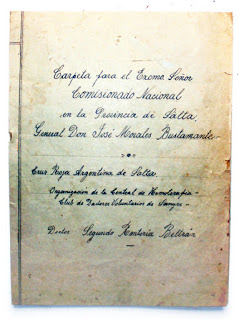 Carpeta para el Excmo Señor
Comisionado Nacional
en la Provincia de Salta,
General Don José Morales Bustamante.
Cruz Roja Argentina de Salta.
Organización de la Central de Hemoterapia -
Club de Dadores Voluntarios de Sangre -
Doctor Segundo Rentería Beltrán